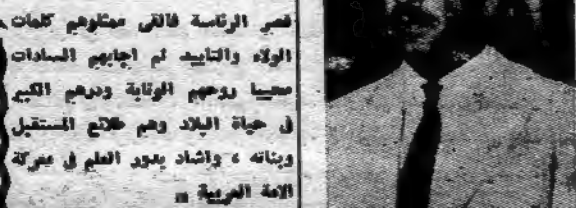 قصر الرئاسة فالقى ممثلوهم كلمات
الولاء والتاييد ثم اجابهم السادات
محييا روحهم الوثابة ودورهم الكبير
في حياة البلاد وهم طلائع المستقبل
وبناته ، واشاد بدور العلم في معركة
الامة العربية